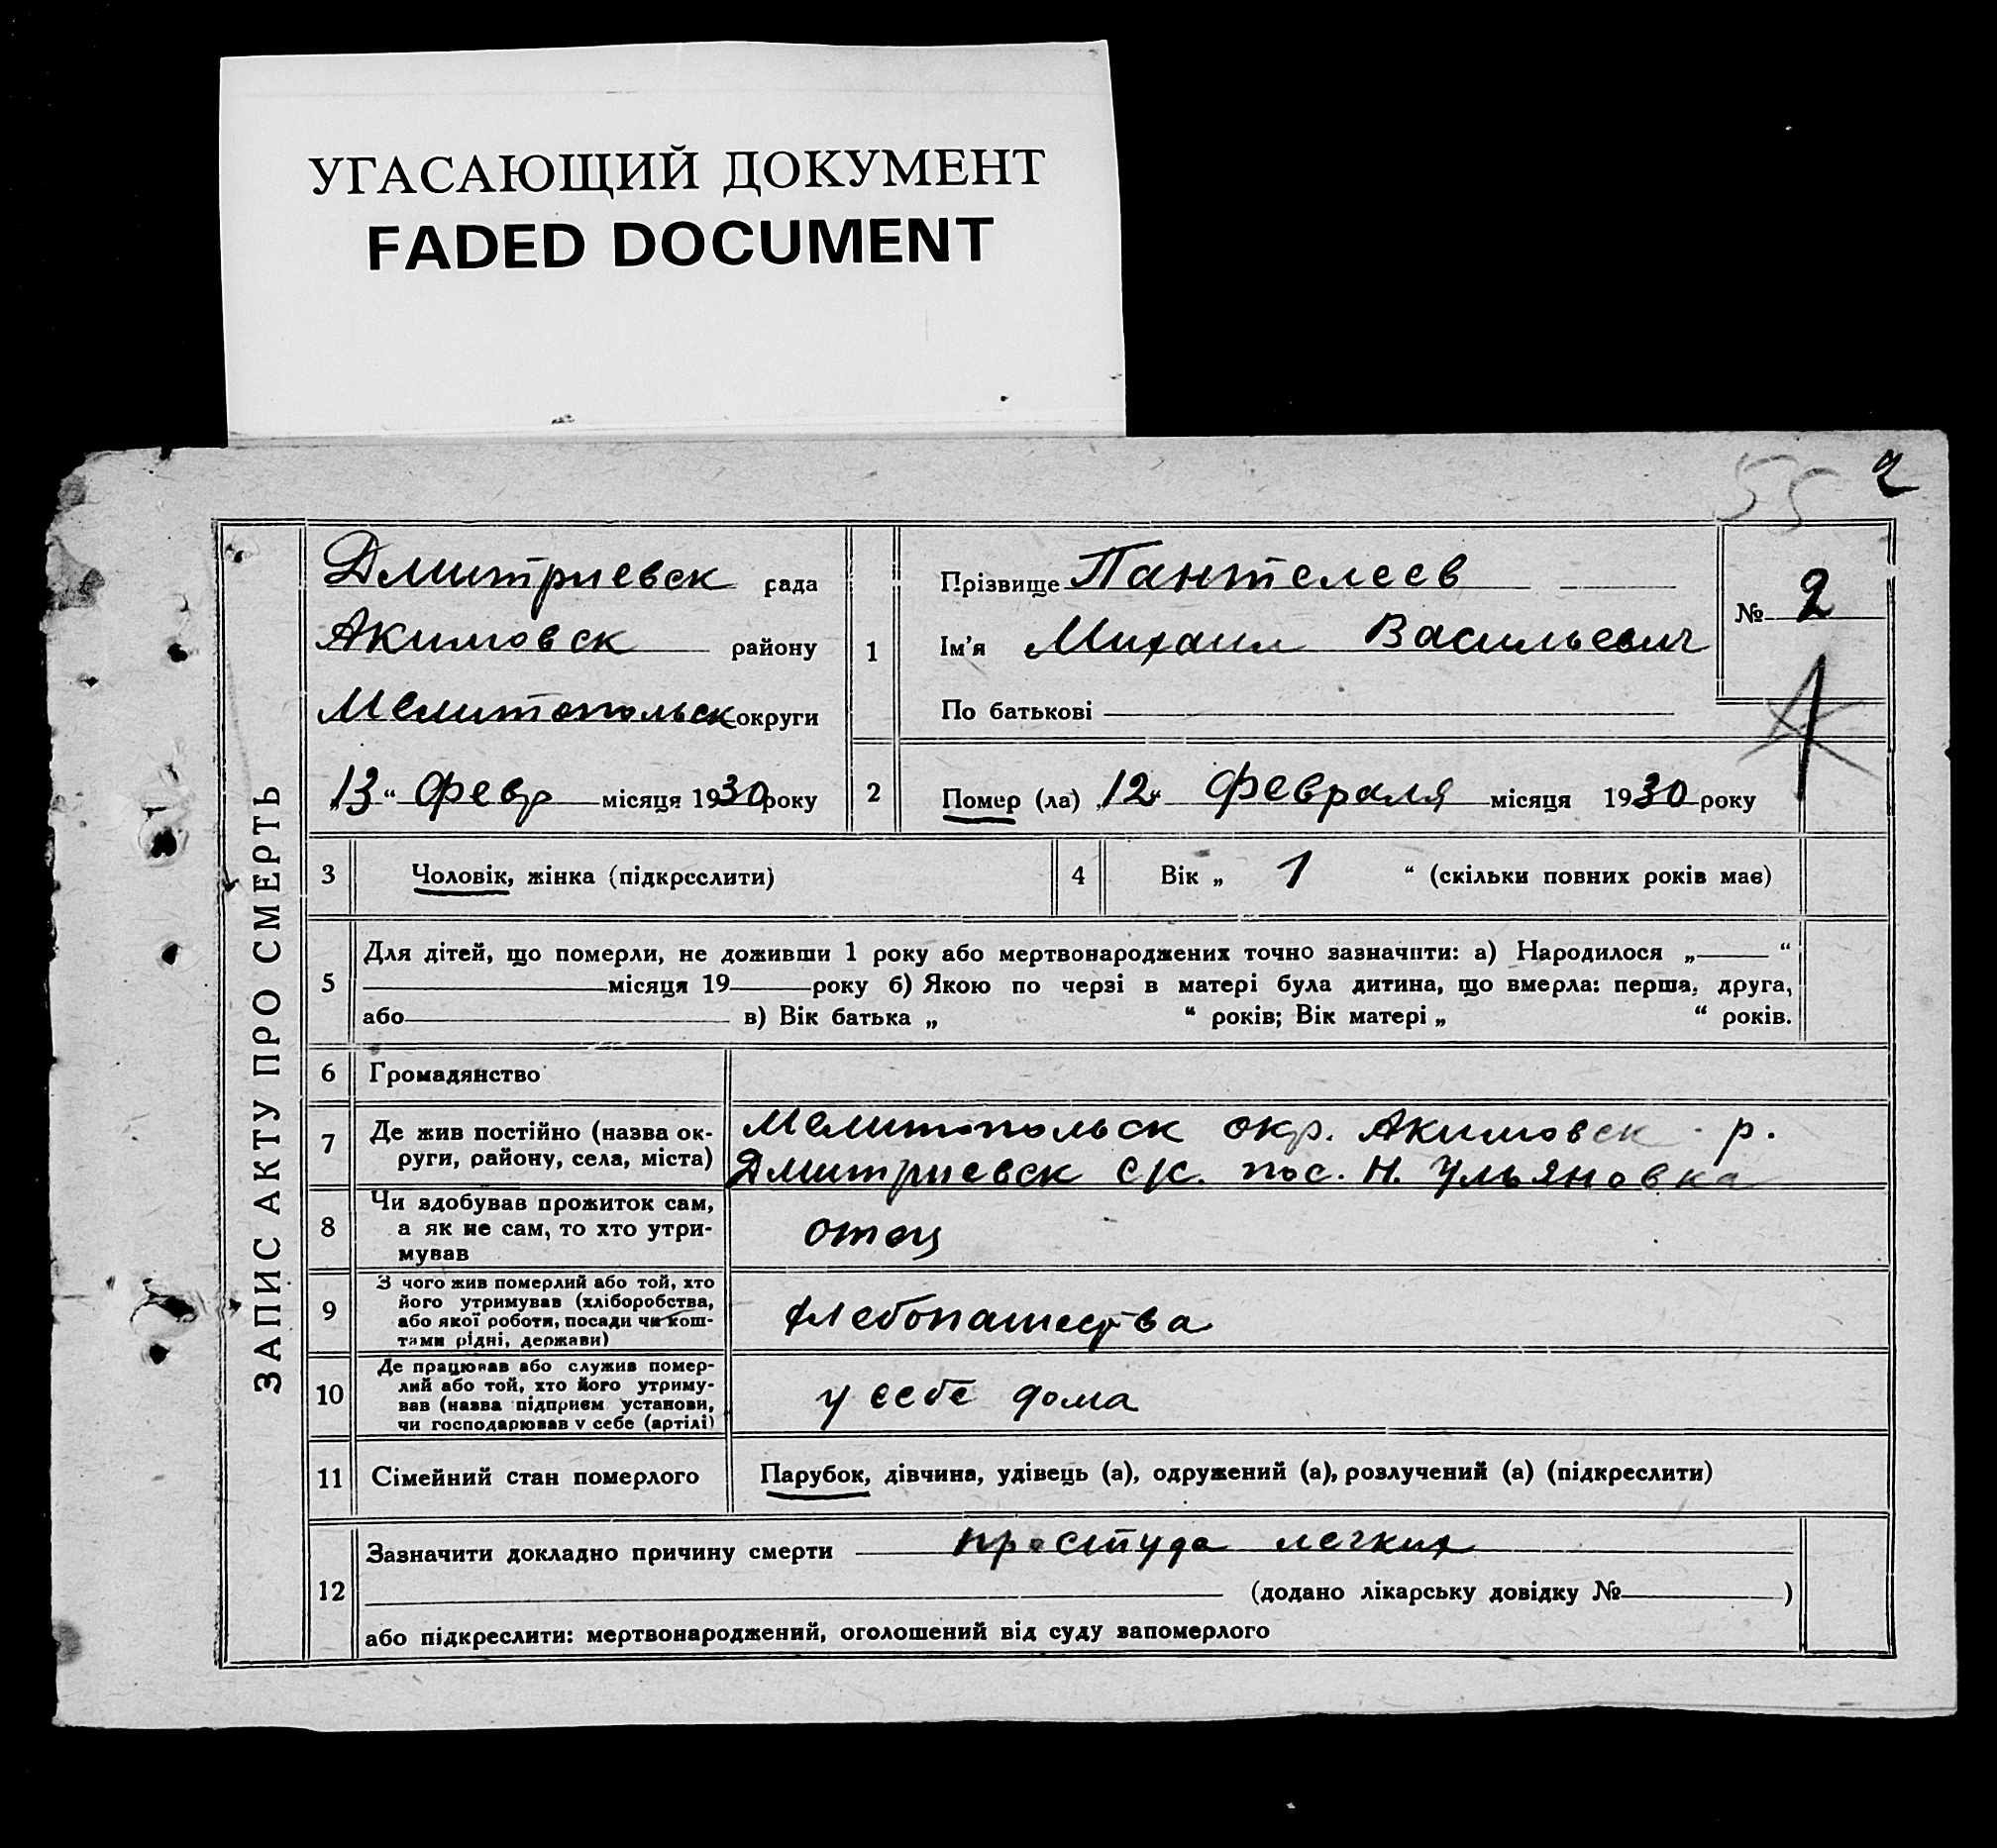 УГАСАЮЩИЙ ДОКУМЕНТ
FADED DOCUMENT
55 2
ЗАПИС АКТУ ПРО СМЕРТЬ
Дмитриевск рада
Акимовск району
Мелитопольск округи
„13“ Февр місяця 1930 року
1
Прізвище Пантелеев
Ім'я Михаил Васильевич
По батькові
№ 2
2 Помер (ла) „12“ Февраля місяця 1930 року
3 Чоловік, жінка (підкреслити)
4 Вік „ 1 “ (скільки повних років має)
5 Для дітей, що померли, не доживши 1 року або мертвонароджених точно зазначити: а) Народилося „ “
місяця 19 року б) Якою по черзі в матері була дитина, що вмерла: перша, друга,
або в) Вік батька „ “ років; Вік матері „ “ років.
6 Громадянство
7 Де жив постійно (назва ок-
руги, району, села, міста)
Мелитопольск окр. Акимовск р.
Дмитриевск с/с. пос. Н. Ульяновка
8 Чи здобував прожиток сам,
а як не сам, то хто утри-
мував
отец
9 З чого жив померлий або той, хто
його утримував (хліборобства,
або якої роботи, посади чи кош-
тами рідні, держави)
хлебопашества
10 Де працював або служив помер-
лий або той, хто його утриму-
вав (назва підприєм установи,
чи господарював у себе (артілі)
у себе дома
11 Сімейний стан померлого
Парубок, дівчина, удівець (а), одружений (а), розлучений (а) (підкреслити)
12 Зазначити докладно причину смерти простуда легких
(додано лікарську довідку № )
або підкреслити: мертвонароджений, оголошений від суду запомерлого